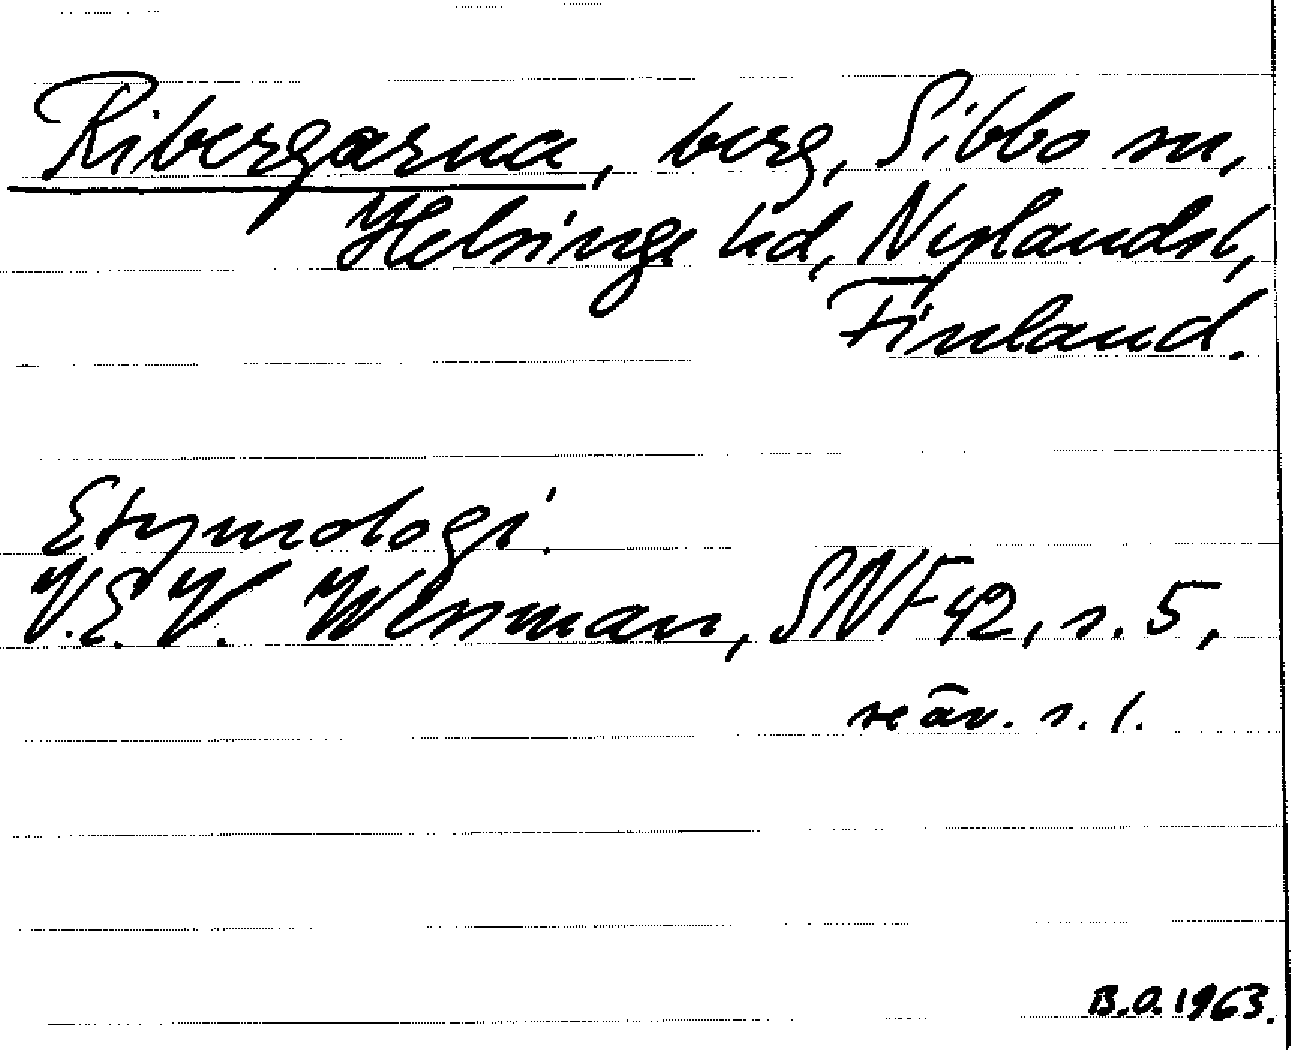 Ribergarna, berg, Sibbo sn,
Helsinge hd, Nylandsl,
Finland.
Etymologi.
V.E.V. Wessman, SNF 42, s. 5,
se äv. s. 1.
B.O. 1963.